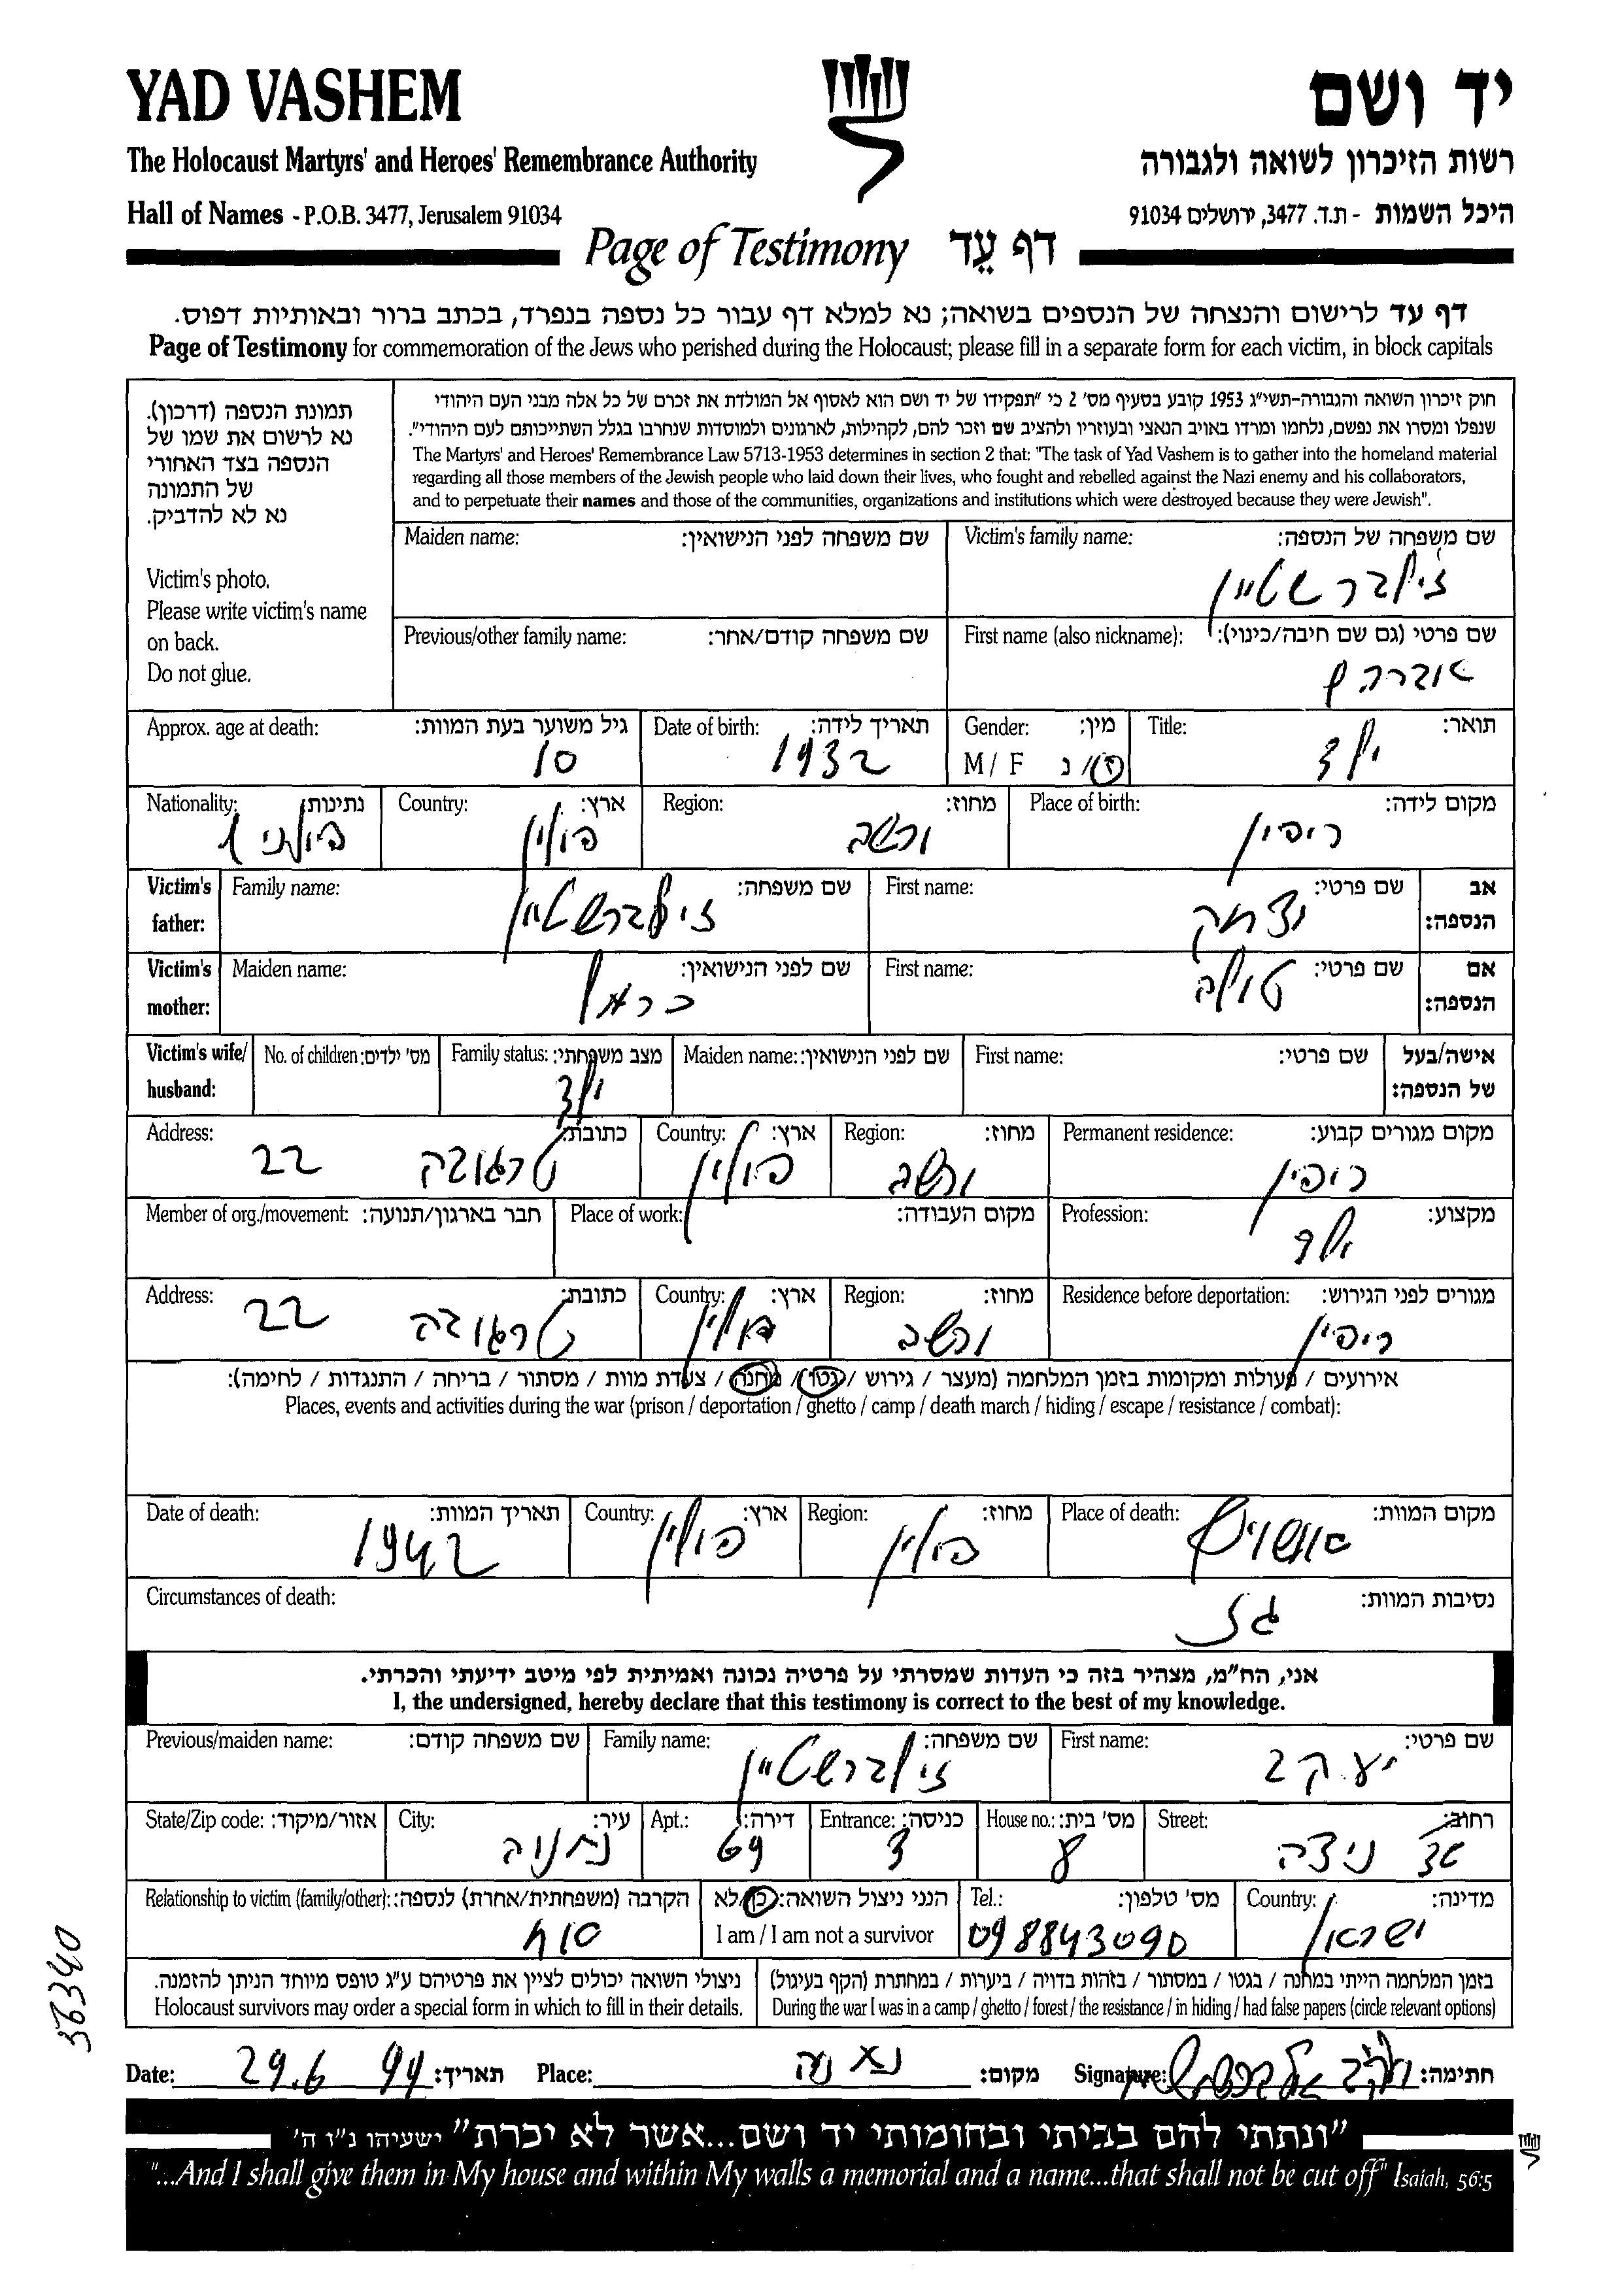 YAD VASHEM
יד ושם
The Holocaust Martyrs' and Heroes' Remembrance Authority
רשות הזיכרון לשואה ולגבורה
Hall of Names - P.O.B. 3477, Jerusalem 91034
היכל השמות - ת.ד. 3477, ירושלים 91034
Page of Testimony דף עֵד
דף עד לרישום והנצחה של הנספים בשואה; נא למלא דף עבור כל נספה בנפרד, בכתב ברור ובאותיות דפוס.
Page of Testimony for commemoration of the Jews who perished during the Holocaust; please fill in a separate form for each victim, in block capitals
תמונת הנספה (דרכון).
נא לרשום את שמו של
הנספה בצד האחורי
של התמונה
נא לא להדביק.
Victim's photo.
Please write victim's name
on back.
Do not glue.
חוק זיכרון השואה והגבורה-תשי"ג 1953 קובע בסעיף מס' 2 כי "תפקידו של יד ושם הוא לאסוף אל המולדת את זכרם של כל אלה מבני העם היהודי
שנפלו ומסרו את נפשם, נלחמו ומרדו באויב הנאצי ובעוזריו ולהציב שם וזכר להם, לקהילות, לארגונים ולמוסדות שנחרבו בגלל השתייכותם לעם היהודי".
The Martyrs' and Heroes' Remembrance Law 5713-1953 determines in section 2 that: "The task of Yad Vashem is to gather into the homeland material
regarding all those members of the Jewish people who laid down their lives, who fought and rebelled against the Nazi enemy and his collaborators,
and to perpetuate their names and those of the communities, organizations and institutions which were destroyed because they were Jewish".
שם משפחה של הנספה: Victim's family name:
זילברשטיין
שם משפחה לפני הנישואין: Maiden name:
שם פרטי (גם שם חיבה/כינוי): First name (also nickname):
אברהם
שם משפחה קודם/אחר: Previous/other family name:
תואר: Title:
ילד
מין: Gender:
ז / נ M / F
תאריך לידה: Date of birth:
1932
גיל משוער בעת המוות: Approx. age at death:
10
מקום לידה: Place of birth:
ריפין
מחוז: Region:
ורשב
ארץ: Country:
פולין
נתינות: Nationality:
פולני
אב הנספה: Victim's father:
שם פרטי: First name:
יצחק
שם משפחה: Family name:
זילברשטיין
אם הנספה: Victim's mother:
שם פרטי: First name:
טולב
שם לפני הנישואין: Maiden name:
אישה/בעל של הנספה: Victim's wife/ husband:
שם פרטי: First name:
שם לפני הנישואין: Maiden name:
מצב משפחתי: Family status:
ילד
מס' ילדים: No. of children:
מקום מגורים קבוע: Permanent residence:
ריפין
מחוז: Region:
ורשב
ארץ: Country:
פולין
כתובת: Address:
טרגובה 22
מקצוע: Profession:
מקום העבודה: Place of work:
חבר בארגון/תנועה: Member of org./movement:
מגורים לפני הגירוש: Residence before deportation:
ריפין
מחוז: Region:
ורשב
ארץ: Country:
פולין
כתובת: Address:
טרגובה 22
אירועים / פעולות ומקומות בזמן המלחמה (מעצר / גירוש / גטו / מחנה / צעדת מוות / מסתור / בריחה / התנגדות / לחימה):
Places, events and activities during the war (prison / deportation / ghetto / camp / death march / hiding / escape / resistance / combat):
מקום המוות: Place of death:
מחוז: Region:
פולין
ארץ: Country:
פולין
תאריך המוות: Date of death:
1942
נסיבות המוות: Circumstances of death:
גז
אני, הח"מ, מצהיר בזה כי העדות שמסרתי על פרטיה נכונה ואמיתית לפי מיטב ידיעתי והכרתי.
I, the undersigned, hereby declare that this testimony is correct to the best of my knowledge.
שם פרטי: First name:
יעקב
שם משפחה: Family name:
זילברשטיין
שם משפחה קודם: Previous/maiden name:
רחוב: Street:
שד ניצה
מס' בית: House no.:
8
כניסה: Entrance:
3
דירה: Apt.:
69
עיר: City:
נתניה
אזור/מיקוד: State/Zip code:
מדינה: Country:
ישראל
מס' טלפון: Tel.:
098843090
הנני ניצול השואה: כן/לא
I am / I am not a survivor
הקרבה (משפחתית/אחרת) לנספה: Relationship to victim (family/other):
אח
בזמן המלחמה הייתי במחנה / בגטו / במסתור / בזהות בדויה / ביערות / במחתרת (הקף בעיגול)
During the war I was in a camp / ghetto / forest / the resistance / in hiding / had false papers (circle relevant options)
ניצולי השואה יכולים לציין את פרטיהם ע"ג טופס מיוחד הניתן להזמנה.
Holocaust survivors may order a special form in which to fill in their details.
56340
חתימה: Signature: מקום: Place: נתניה תאריך: Date: 29.6 99
"ונתתי להם בביתי ובחומותי יד ושם...אשר לא יכרת" ישעיהו נ"ו ה'
"...And I shall give them in My house and within My walls a memorial and a name...that shall not be cut off" Isaiah, 56:5